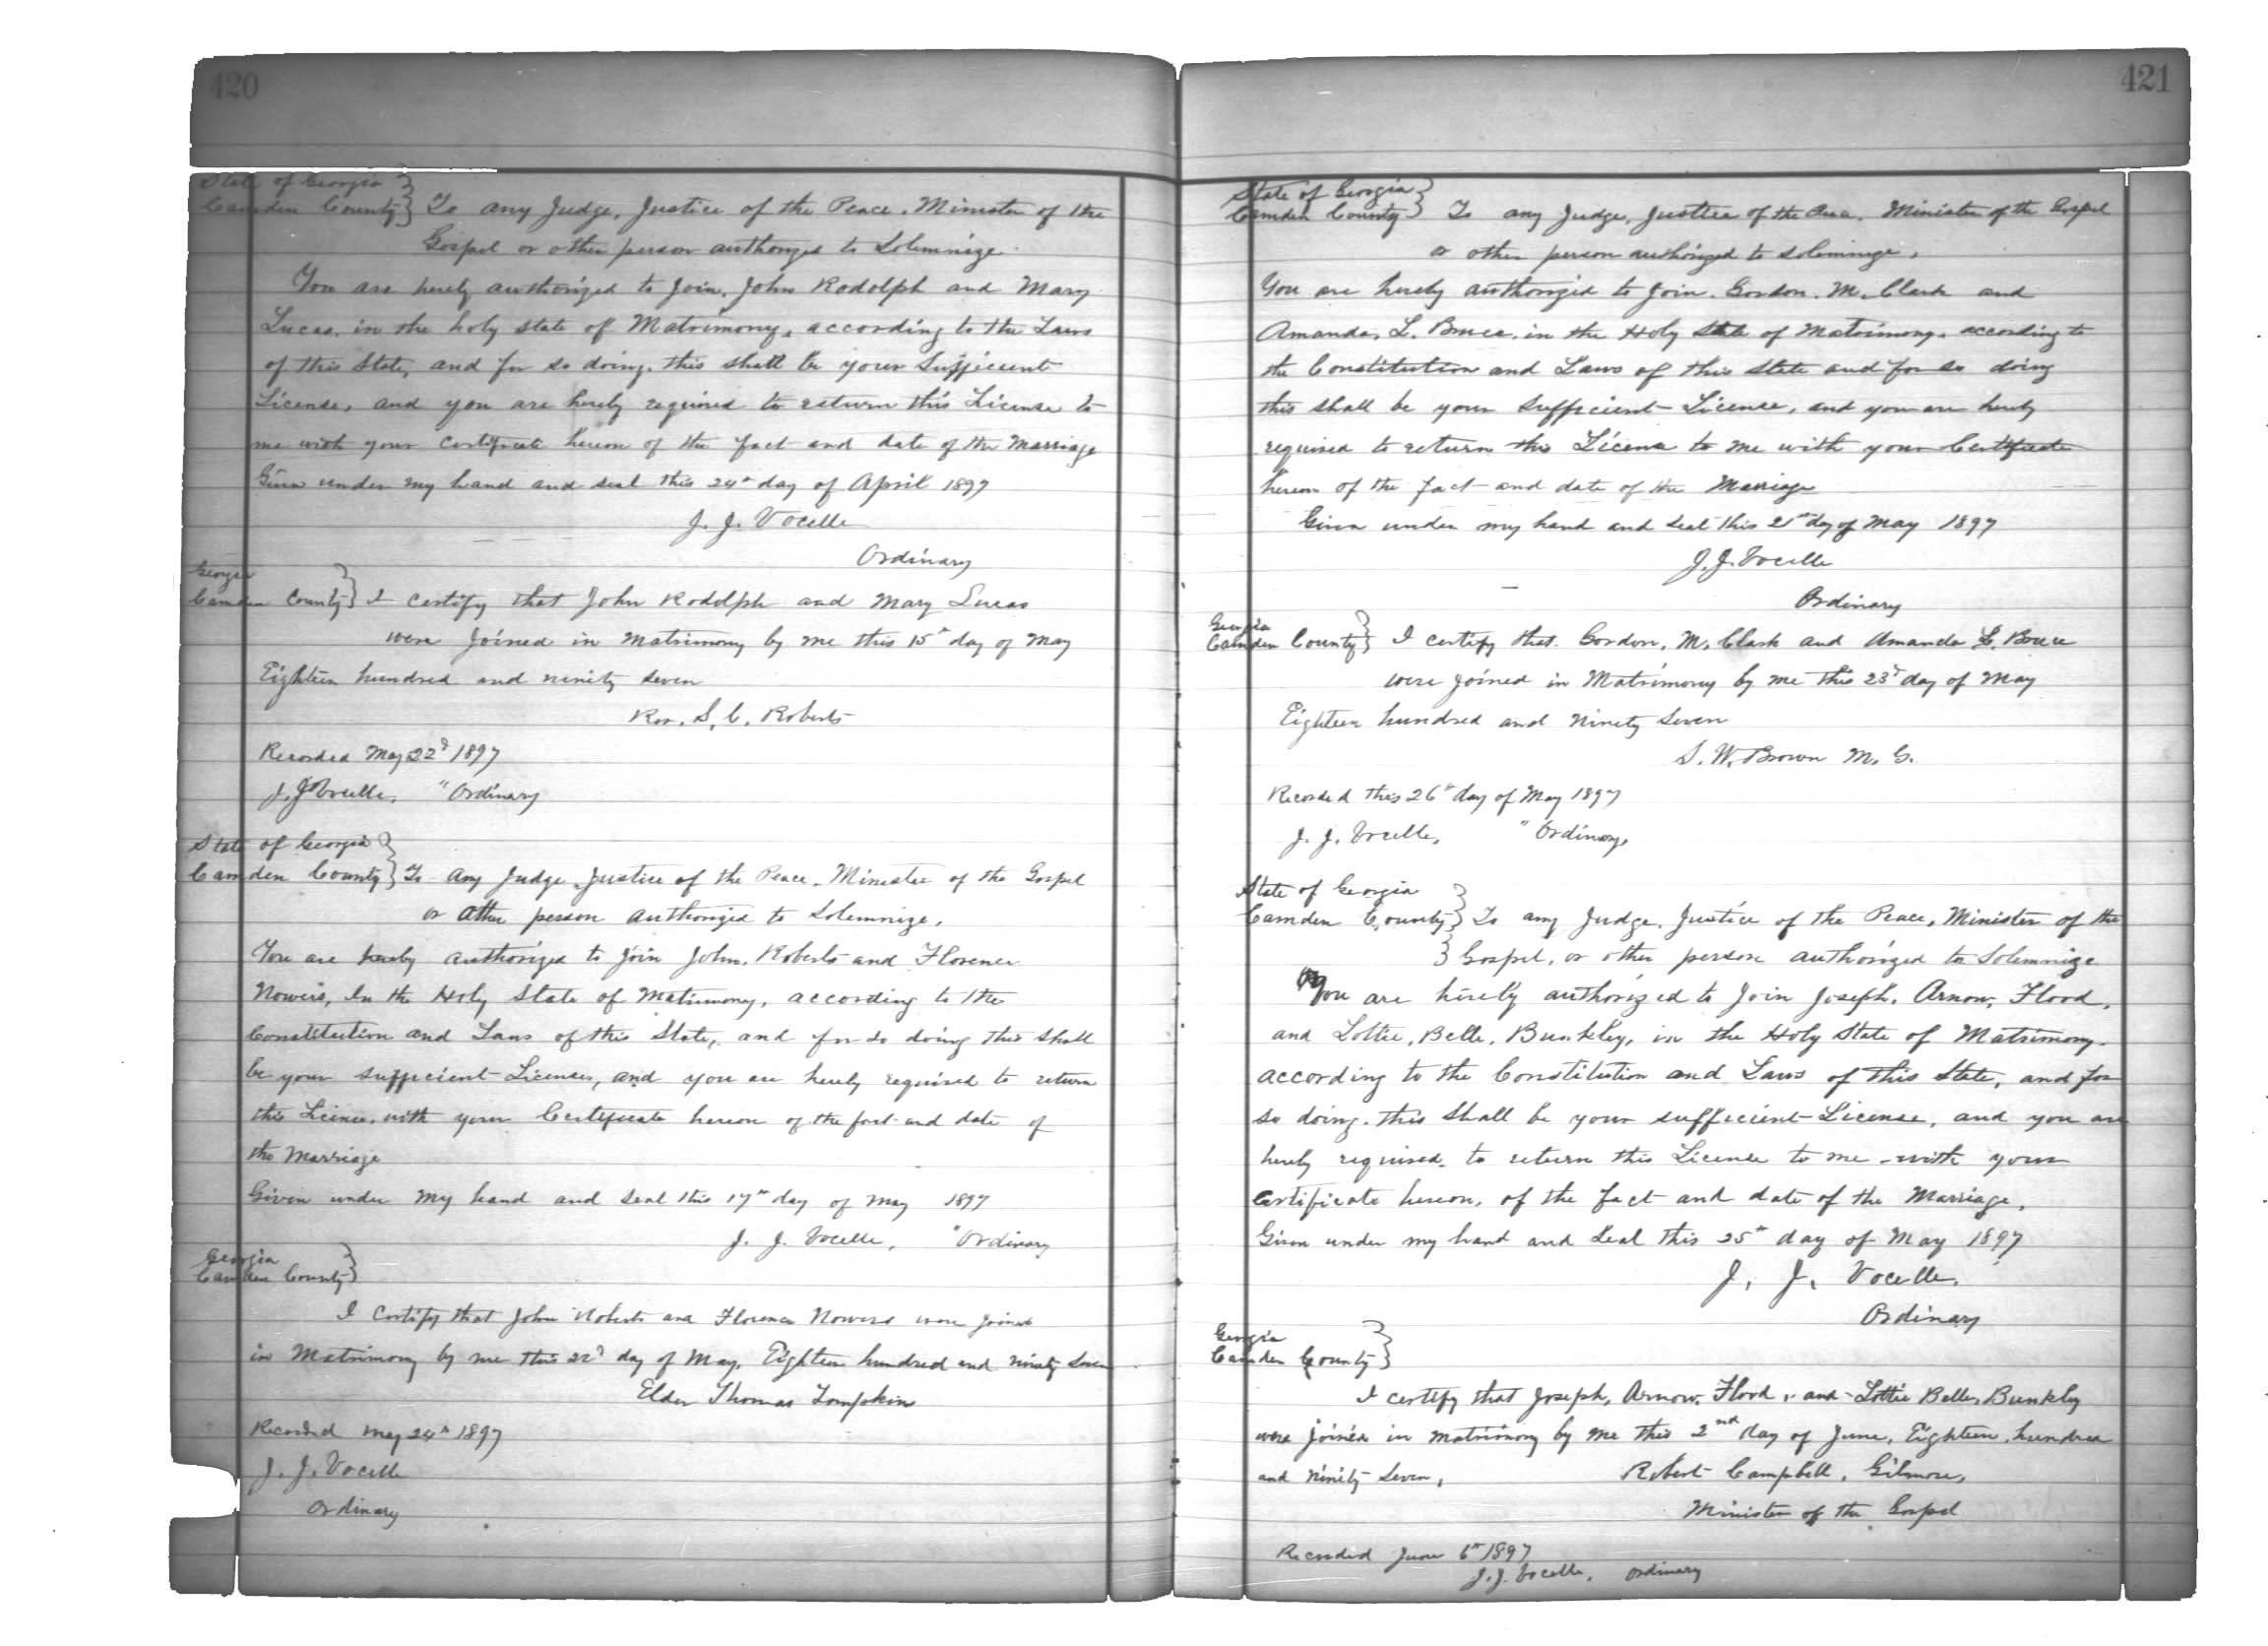 420
State of Georgia
Camden County } To any Judge, Justice of the Peace, Minister of the
Gospel or other person authorized to Solemnize.
You are herely authorized to Join, John Rodolph and Mary
Lucas, in the holy state of Matrimony, according to the Laws
of this State, and for so doing, this shall be your Sufficient
License, and you are hereby required to return this License to
me with your Certificate hereon of the fact and date of the Marriage
Given under my hand and seal this 24th day of April 1897
J. J. Vocelle
Ordinary
Georgia
Camden County } I certify that John Rodolph and Mary Lucas
were Joined in Matrimony by me this 15th day of May
Eighteen hundred and ninety seven
Rev. S. C. Roberts
Recorded May 22d 1897
J. J. Vocelle, " Ordinary
State of Georgia
Camden County } To Any Judge, Justice of the Peace, Minister of the Gospel
or other person authorized to Solemnize,
You are hereby authorized to Join John, Roberts and Florence
Nowers, In the Holy State of Matrimony, according to the
Constitution and Laws of this State, and for so doing this shall
be your sufficient License, and you are hereby required to return
this License, with your Certificate hereon of the fact and date of
the Marriage
Given under my hand and seal this 17th day of May 1897
J. J. Vocelle, " Ordinary
Georgia
Camden County }
I Certify that John Roberts and Florence Nowers were Joined
in Matrimony by me this 22d day of May, Eighteen hundred and ninety Seven
Elder Thomas Tompkin
Recorded May 24th 1897
J. J. Vocelle
Ordinary
421
State of Georgia
Camden County } To any Judge, Justice of the Peace, Minister of the Gospel
or other person authorized to Solemnize,
You are hereby authorized to Join, Gordon, M, Clark and
Amanda, L. Bruce, in the Holy State of Matrimony, according to
the Constitution and Laws of this State and for so doing
this shall be your Sufficient License, and you are hereby
required to return this License to me with your Certificate
hereon of the fact and date of the Marriage
Given under my hand and seal this 21st day of May 1897
J. J. Vocelle
Ordinary
Georgia
Camden County } I certify that, Gordon, M, Clark and Amanda L. Bruce
were joined in Matrimony by me this 23d day of May
Eighteen hundred and Ninety Seven
S. W. Brown M. G.
Recorded this 26th day of May 1897
J. J. Vocelle, " Ordinary,
State of Georgia
Camden County } To any Judge, Justice of the Peace, Minister of the
} Gospel, or other person authorized to Solemnize
You are hereby authorized to Join Joseph, Arnow, Flood,
and Lottie, Belle, Bunkley, in the Holy State of Matrimony.
according to the Constitution and Laws of this State, and for
so doing, this shall be your sufficient License, and you are
hereby required, to return this License to me with your
Certificate hereon, of the fact and date of the Marriage,
Given under my hand and Seal this 25th day of May 1897
J. J. Vocelle,
Ordinary
Georgia
Camden County }
I certify that Joseph, Arnow, Flood, and Lottie Belle, Bunkley
were joined in matrimony by me this 2nd day of June, Eighteen, hundred
and Ninety Seven, Robert Campbell, Gilmore,
Minister of the Gospel
Recorded June 6th 1897
J. J. Vocelle, Ordinary